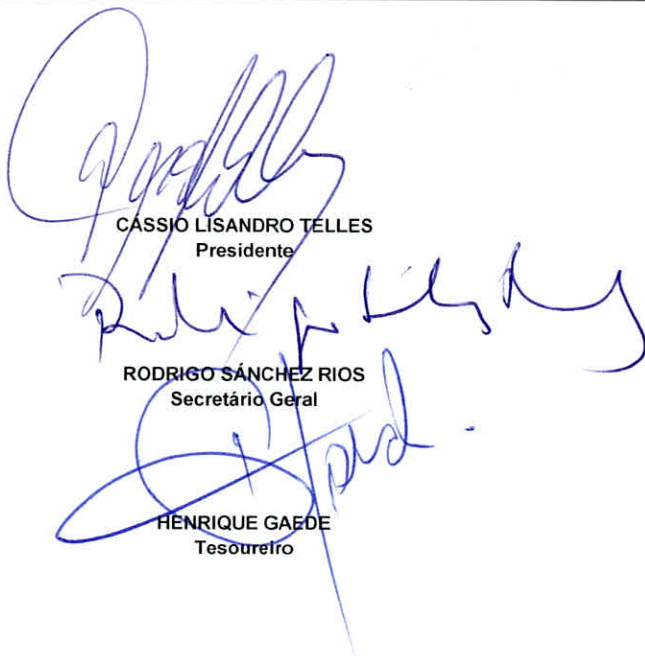 CÁSSIO LISANDRO TELLES
Presidente
RODRIGO SÁNCHEZ RIOS
Secretário Geral
HENRIQUE GAEDE
Tesoureiro